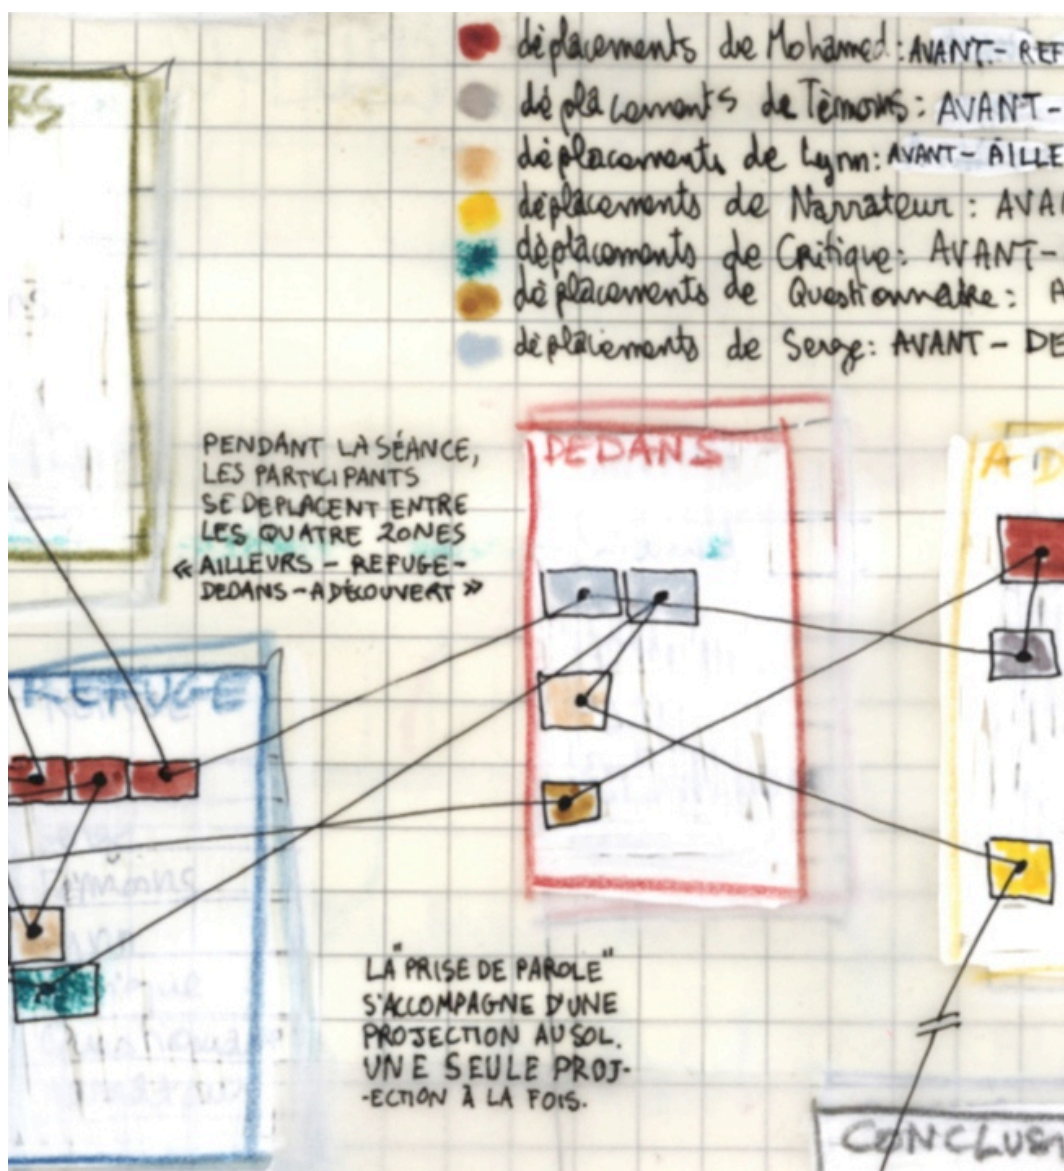 RS
déplacements de Mohamed: AVANT-REF
déplacements de Témoins: AVANT-
déplacements de Lynn: AVANT-AILLE
déplacements de Narrateur: AVA
déplacements de Critique: AVANT-
déplacements de Questionnaire: A
déplacements de Serge: AVANT-DE
PENDANT LA SÉANCE,
LES PARTICIPANTS
SE DEPLACENT ENTRE
LES QUATRE ZONES
« AILLEURS - REFUGE -
DEDANS - A DÉCOUVERT »
DEDANS
A D
REFUGE
LA "PRISE DE PAROLE"
S'ACCOMPAGNE D'UNE
PROJECTION AU SOL.
UNE SEULE PROJ-
-ECTION À LA FOIS.
CONCLUS